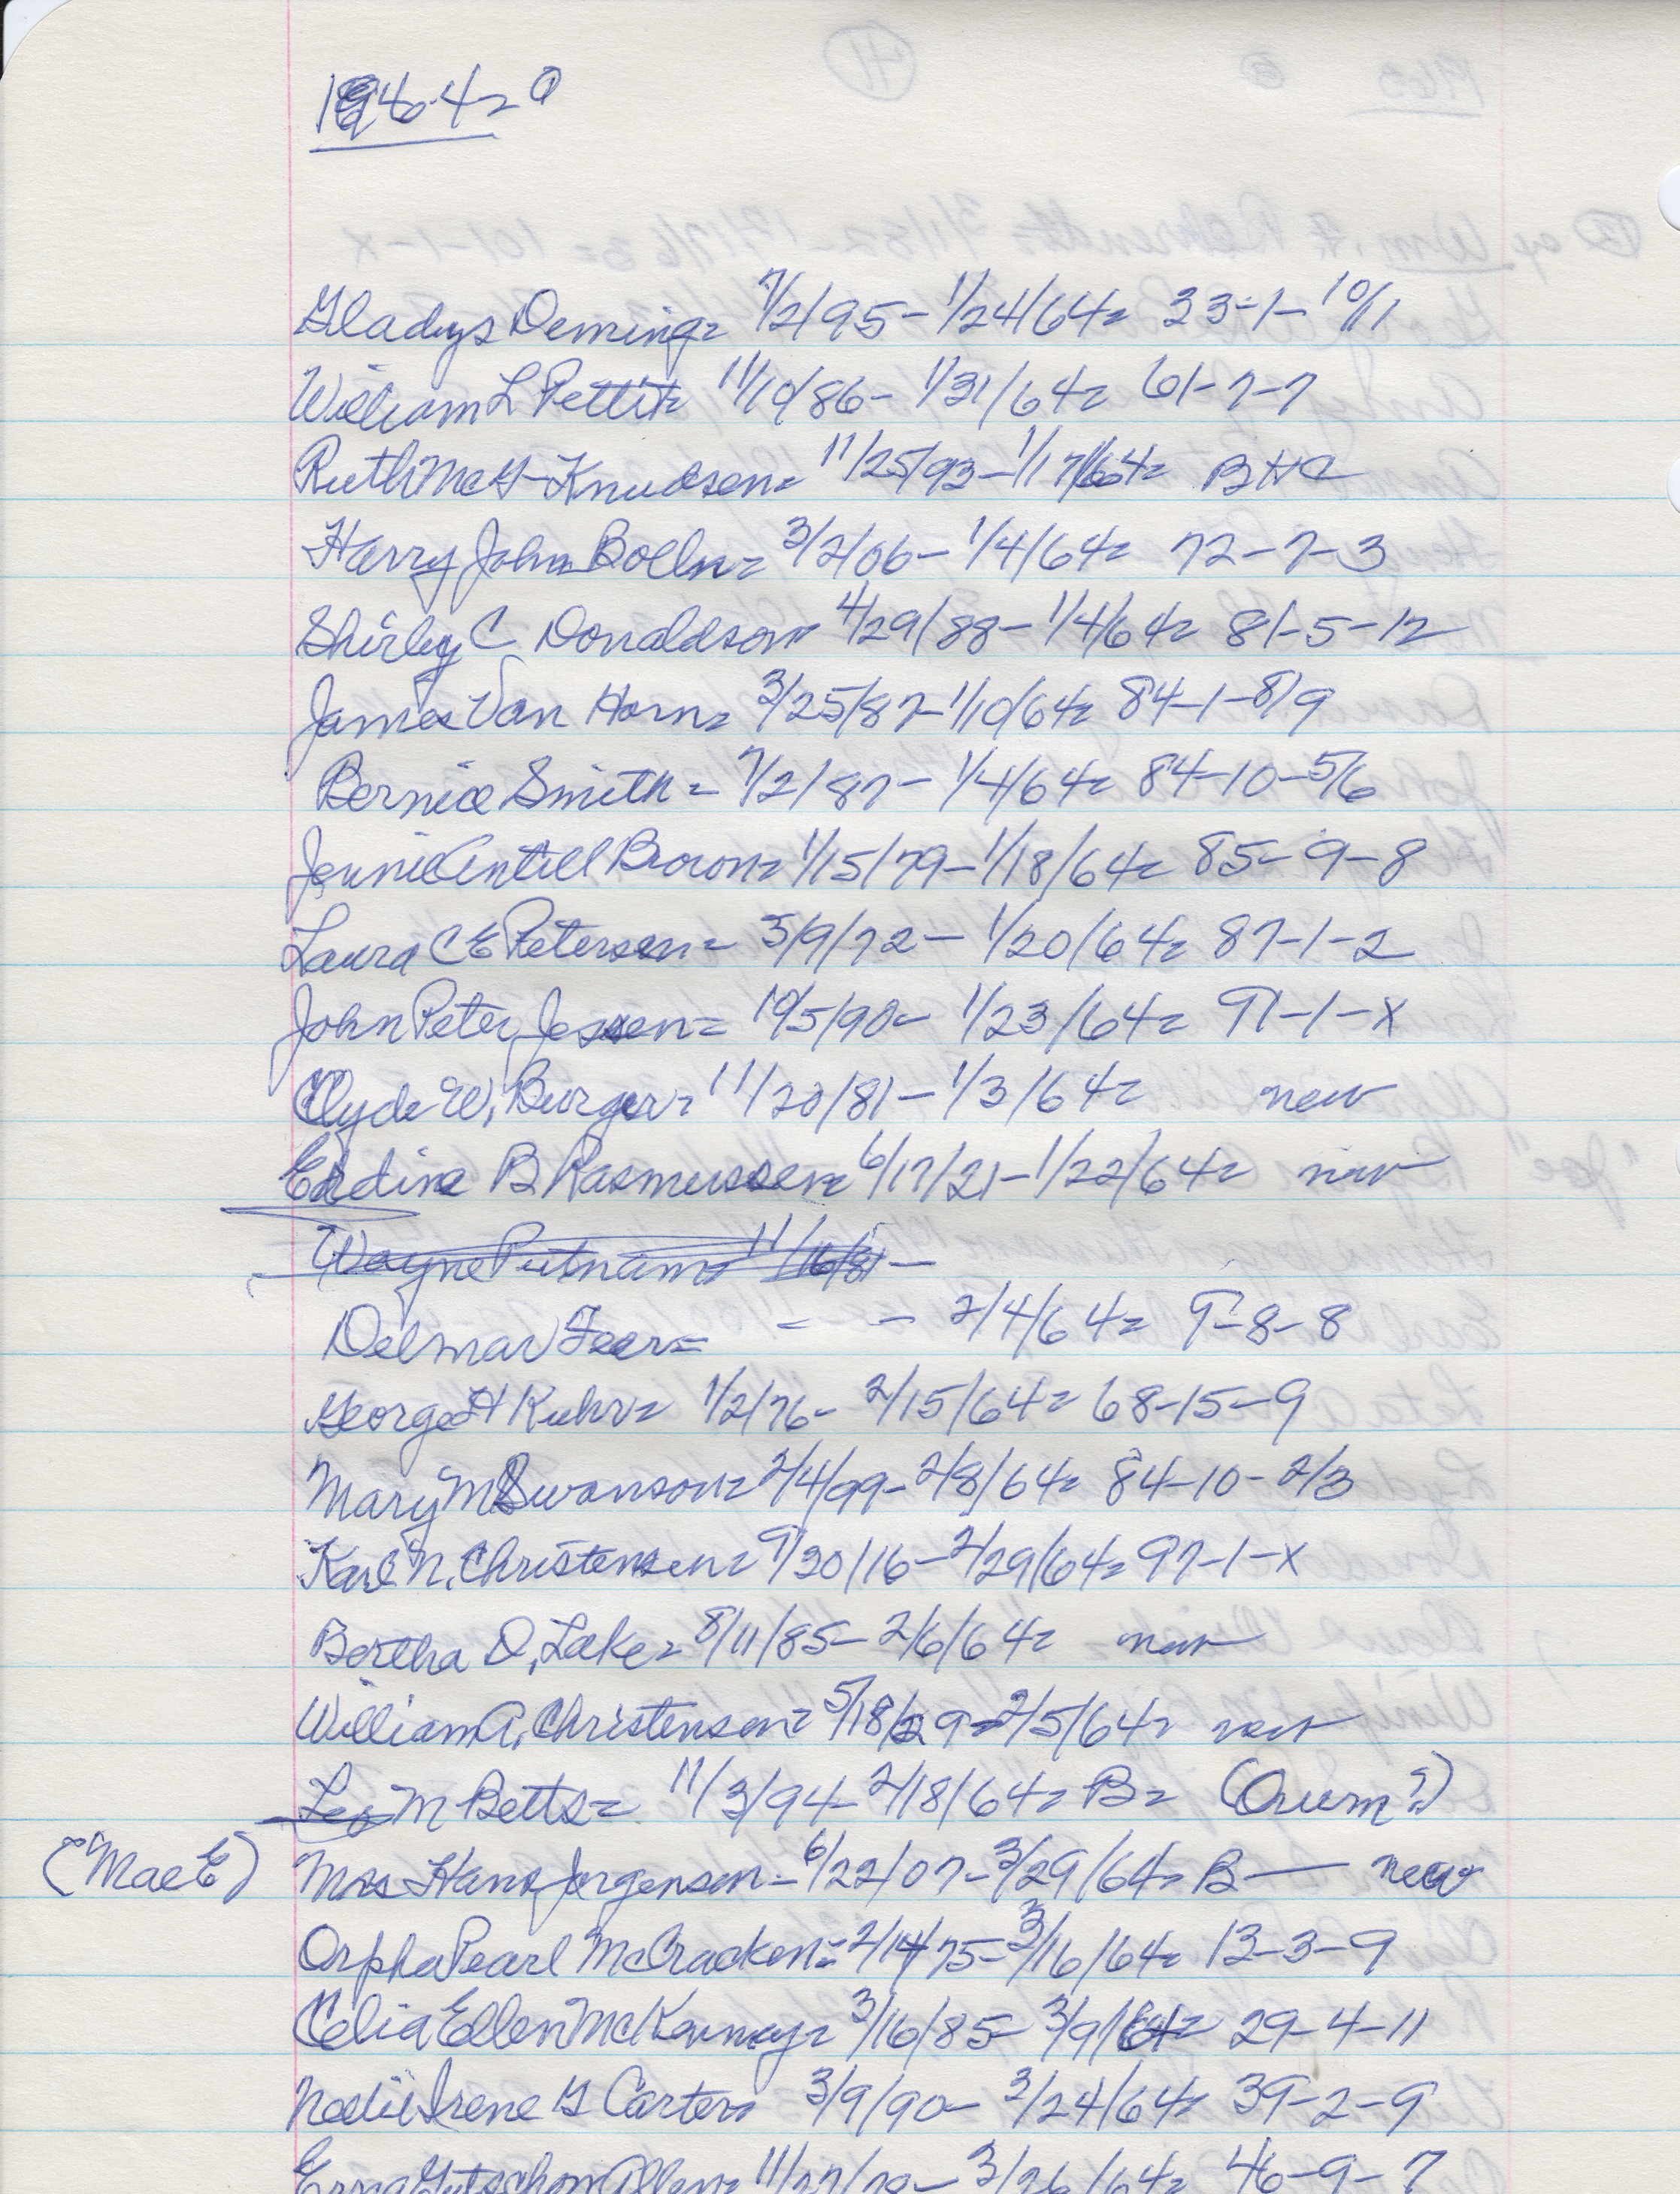 1964=
Gladys Deming= 7/2/95- 1/24/64= 33-1-10/11
William L Pettit= 11/10/86- 1/31/64= 61-7-7
Ruth McG-Knudsen= 11/25/93-1/17/64= BHC
Harry John Bolln= 3/2/06- 1/4/64= 72-7-3
Shirley C Donaldson= 4/29/88- 1/4/64= 81-5-12
James Van Horn= 3/25/87-1/10/64= 84-1-8/9
Bernice Smith= 7/2/87- 1/4/64= 84-10-5/6
Jennie Antill Brown= 1/15/79-1/18/64= 85-9-8
Laura C E Petersen= 3/9/72- 1/20/64= 87-1-2
John Peter Jessen= 10/5/90- 1/23/64= 91-1-x
Clyde W, Burger= 11/20/81- 1/3/64= new
Erdine B Rasmussen= 6/17/21-1/22/64= new
Wayne Putnam= 11/16/81-
Delmar Fear= - - 2/4/64= 9-8-8
George H Kuhr= 1/2/76- 2/15/64= 68-15-9
Mary M Swanson= 2/4/99- 2/8/64= 84-10-2/3
Karl N, Christensen= 9/30/16-2/29/64= 97-1-x
Bertha D, Lake= 8/11/85- 2/6/64= new
William A, Christensen= 5/18/29-2/5/64= new
Leo M Betts= 11/3/94- 2/18/64= B= (Oum?)
("Mae E) Mrs Hans Jorgensen- 6/22/07-3/29/64= B- new
Orpha Pearl McCracken= 2/14/75- 3/16/64= 13-3-9
Celia Ellen McKenney= 3/16/85- 3/9/64= 29-4-11
Irene G Carter= 3/9/90- 3/24/64= 39-2-9
Allen= 3/26/64= 46-9-7